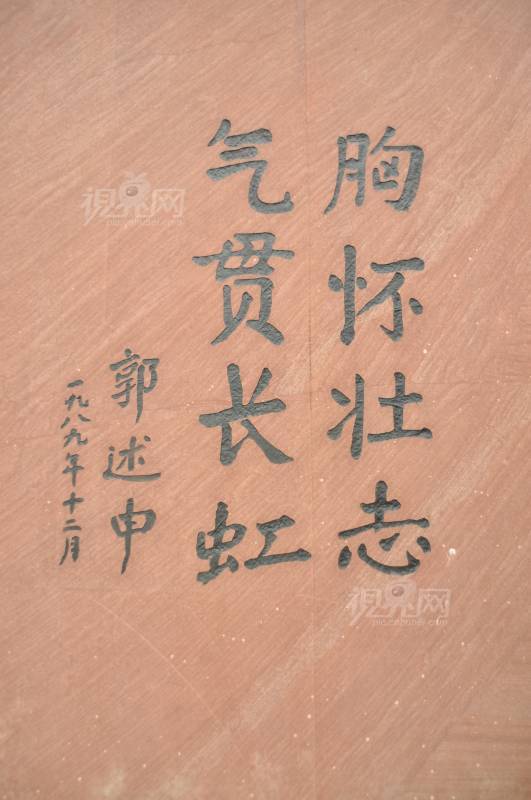 胸怀壮志
气贯长虹
郭述申
一九八九年十二月
視界网
視界网